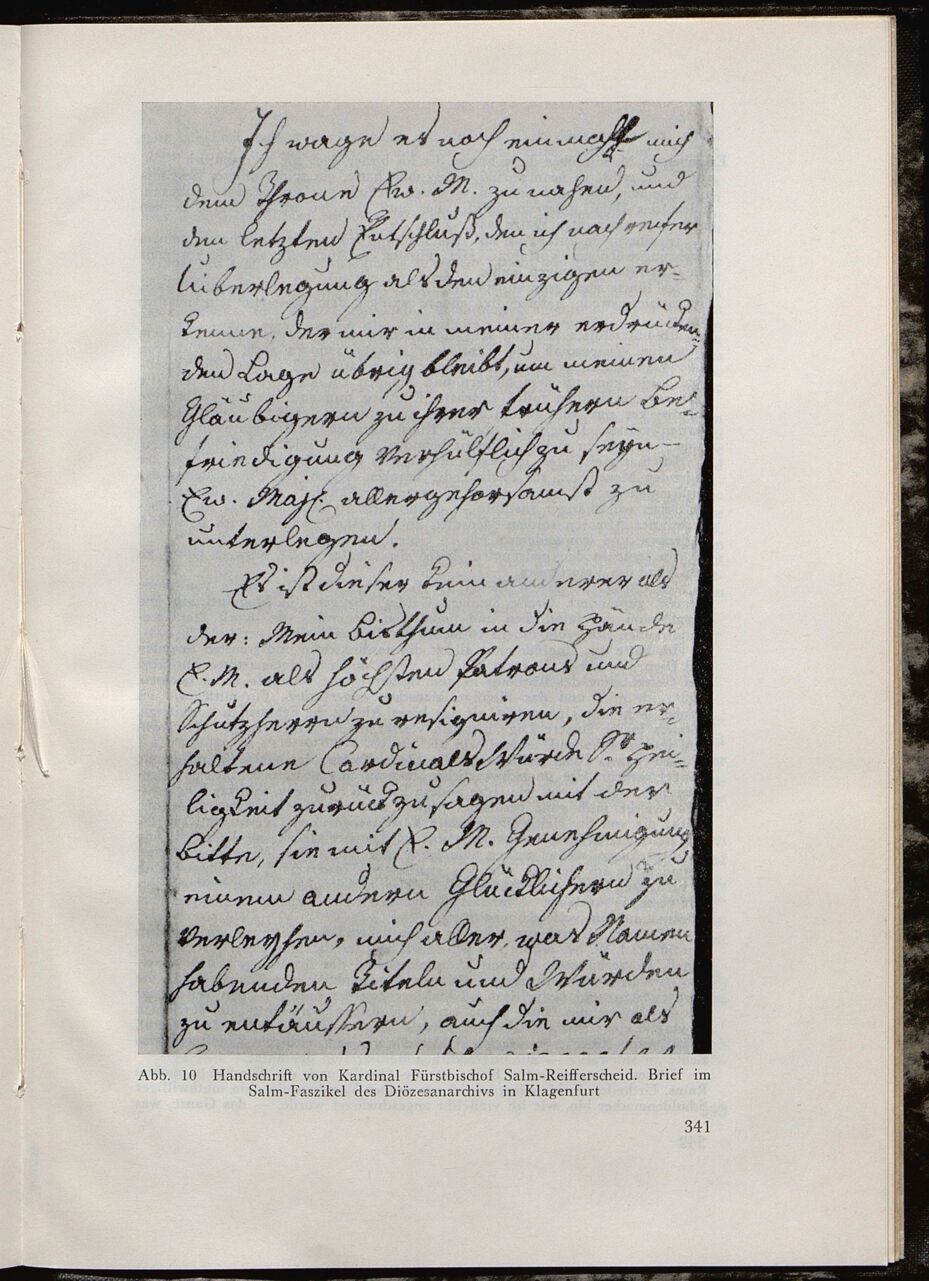 Ich wage es noch einmahl mich
dem Throne Ew. M. zu nahen, und
den letzten Entschluß, den ich nach reifer
Überlegung als den einzigen er-
kenne, der mir in meiner erdrücken-
den Lage übrig bleibt, um meinen
Gläubigern zu ihrer frühern Be-
friedigung verhülflich zu seyn –
Ew. Maj. allergehorsamst zu
unterlegen.
Es ist dieser kein anderer als
der: Mein Bisthum in die Hände
E. M. als höchsten Patrons und
Schutzherrn zu resigniren, die er-
haltene Cardinals Würde Sr. Hei-
ligkeit zurückzusagen mit der
Bitte, sie mit E. M. Genehmigung
einem andern Glücklichern zu
verleyhen, mich aller, was Namen
habenden Titeln und Würden
zu entäussern, auch die mir als
Abb. 10 Handschrift von Kardinal Fürstbischof Salm-Reifferscheid. Brief im
Salm-Faszikel des Diözesanarchivs in Klagenfurt
341